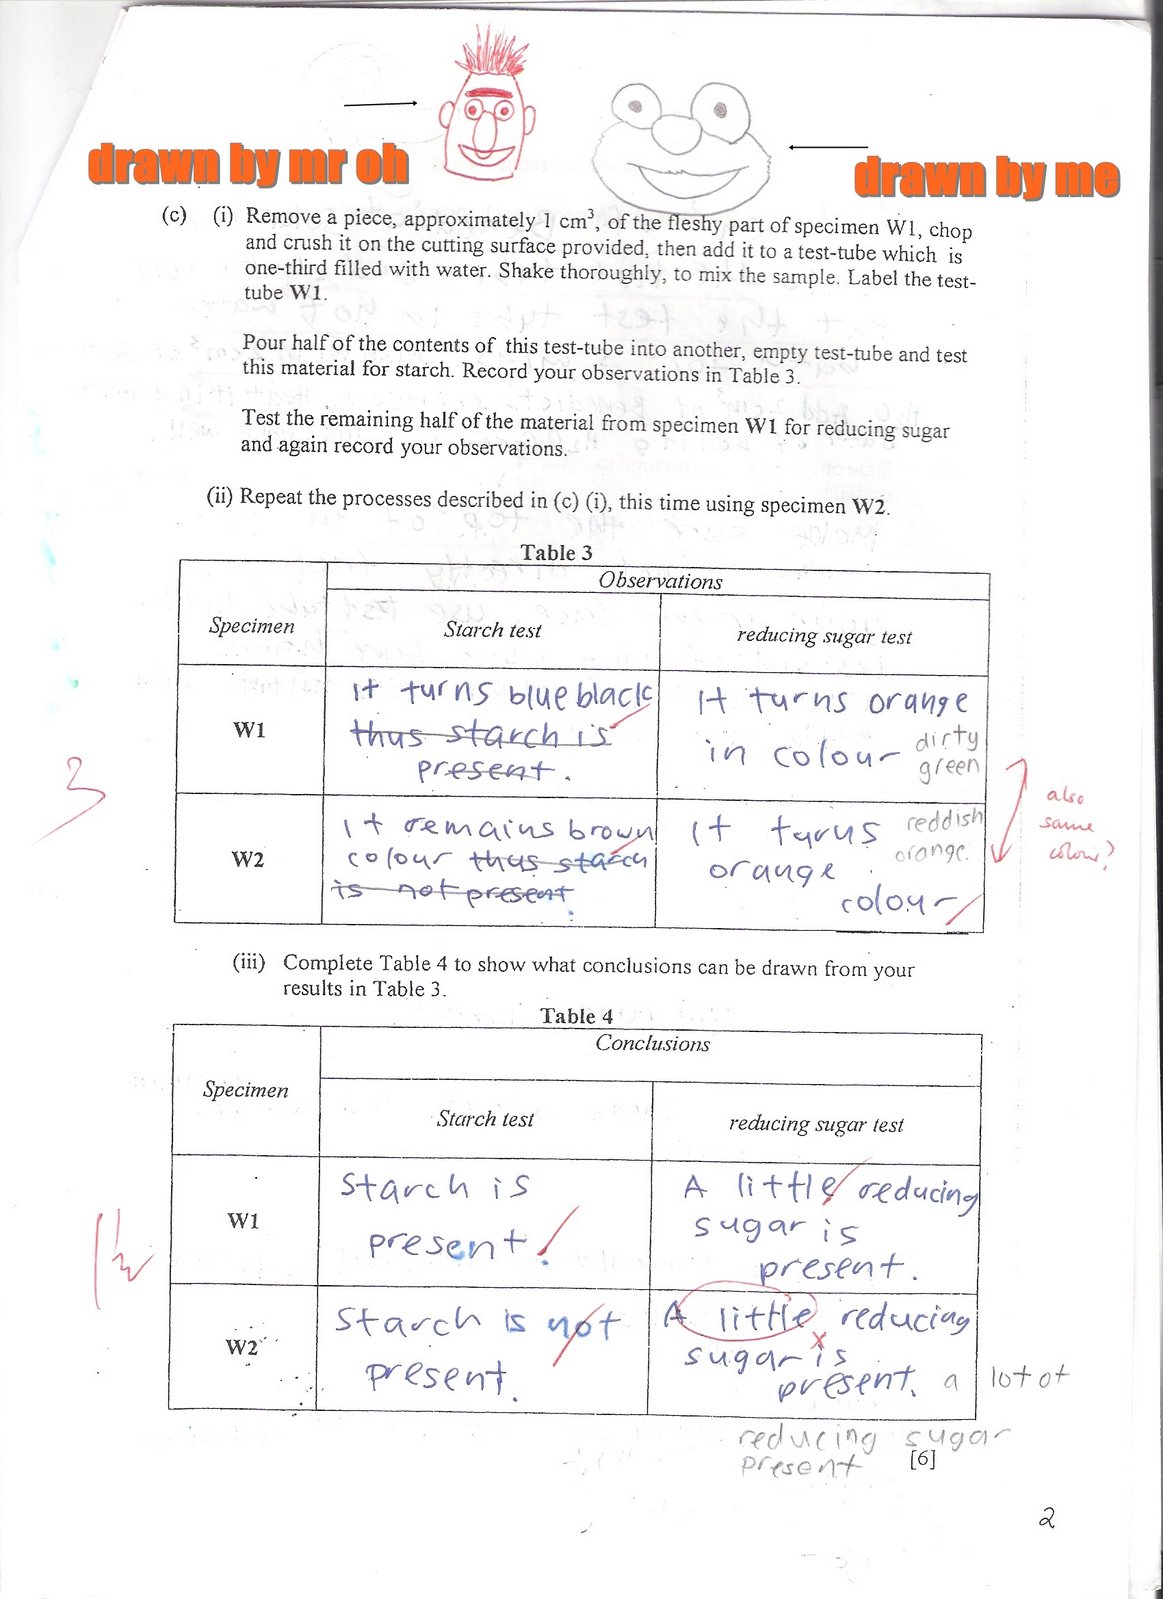 drawn by mr oh
drawn by me
(c) (i) Remove a piece, approximately 1 cm³, of the fleshy part of specimen W1, chop
and crush it on the cutting surface provided, then add it to a test-tube which is
one-third filled with water. Shake thoroughly, to mix the sample. Label the test-
tube W1.
Pour half of the contents of this test-tube into another, empty test-tube and test
this material for starch. Record your observations in Table 3.
Test the remaining half of the material from specimen W1 for reducing sugar
and again record your observations.
(ii) Repeat the processes described in (c) (i), this time using specimen W2.
Table 3
Specimen
Observations
Starch test
reducing sugar test
W1
it turns blue black
thus starch is
present.
It turns orange
in colour
dirty
green
3
W2
it remains brown
colour thus starch
is not present.
it turns
orange
colour
reddish
orange.
also
same
colour?
(iii) Complete Table 4 to show what conclusions can be drawn from your
results in Table 3.
Table 4
Specimen
Conclusions
Starch test
reducing sugar test
W1
Starch is
present.
A little reducing
sugar is
present.
1½
W2
Starch is not
present.
A little reducing
sugar is
present.
a lot of
reducing sugar
present
[6]
2